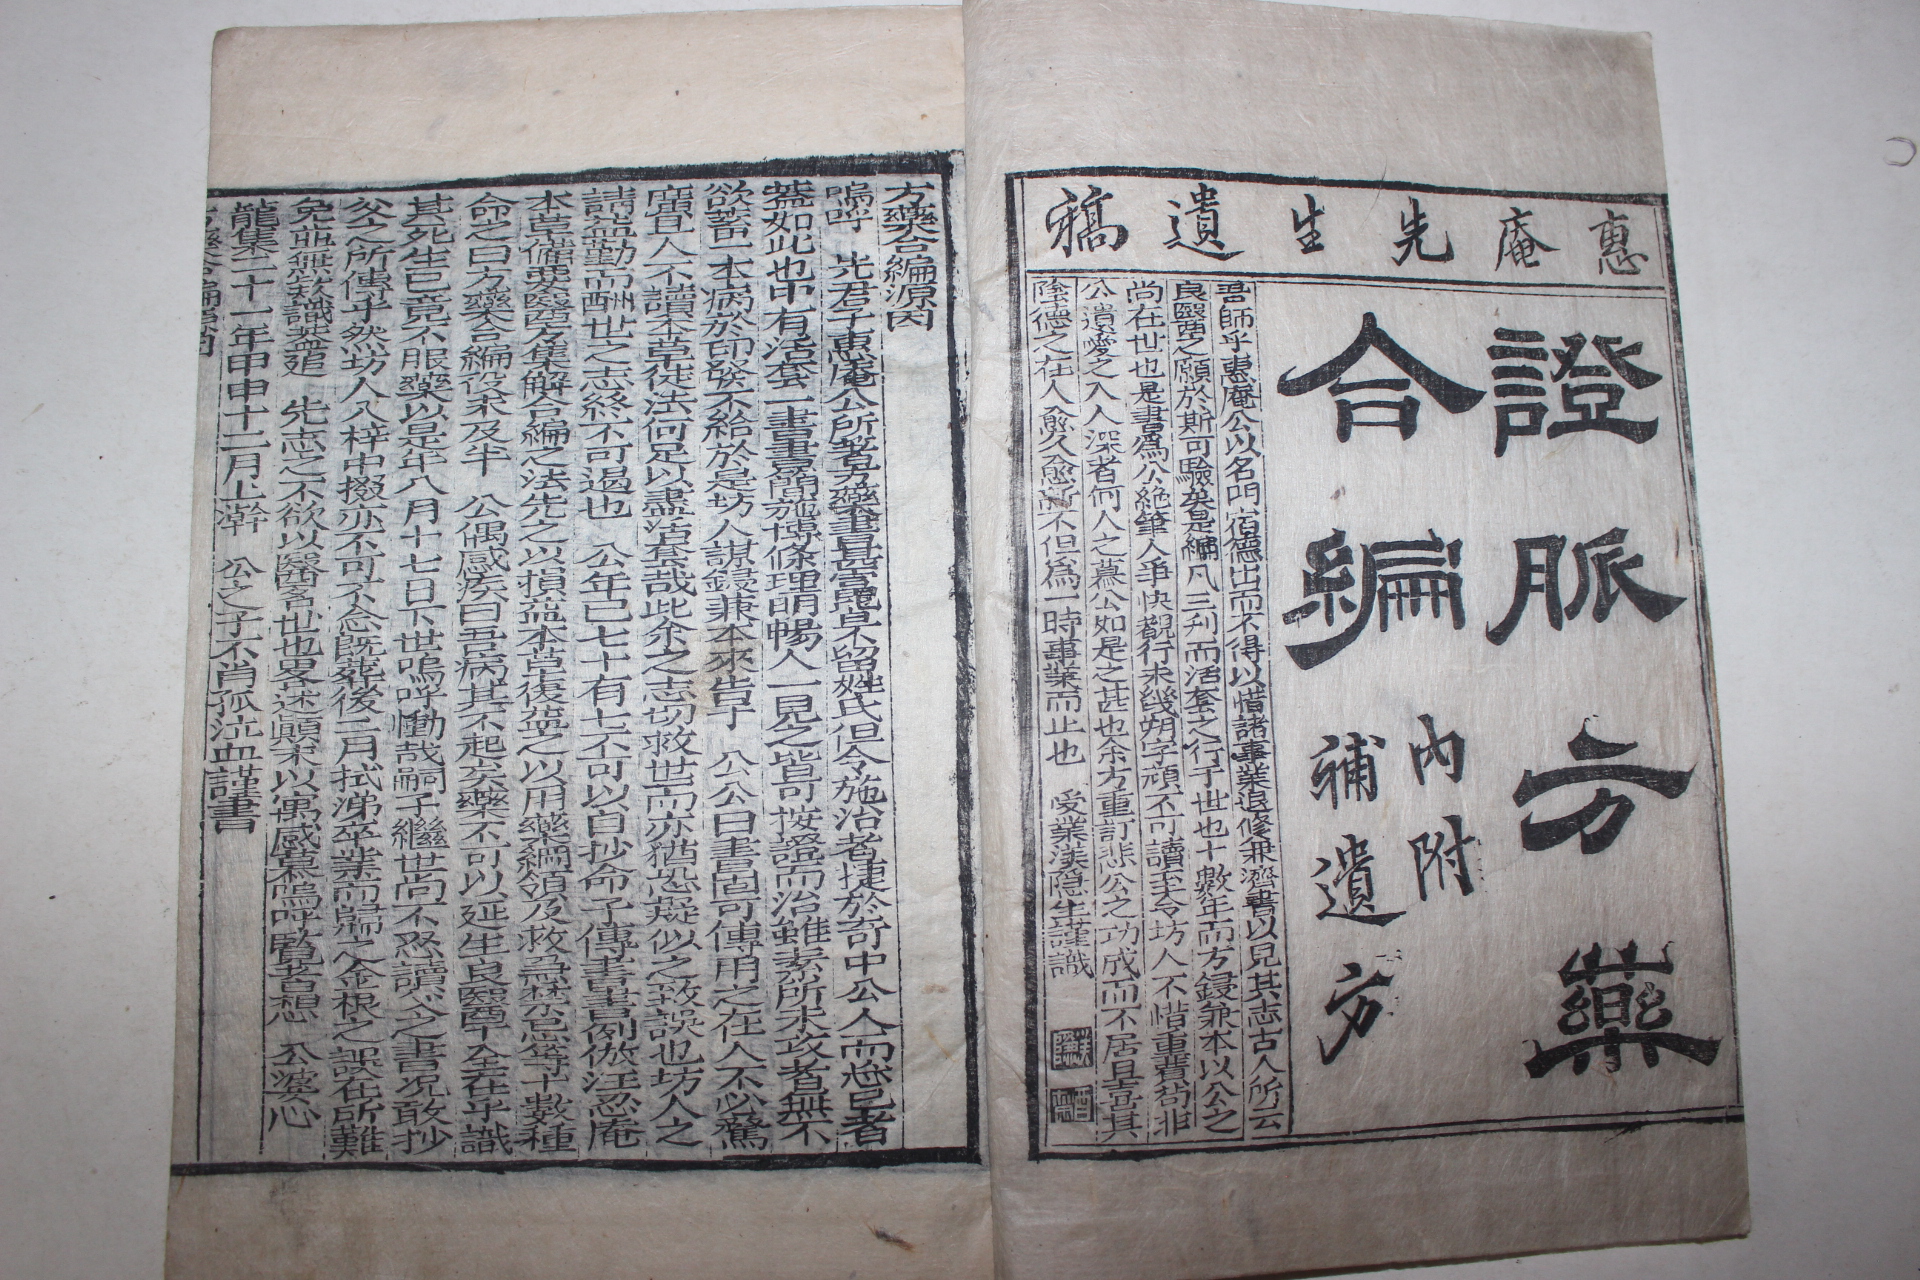 惠庵先生遺稿
證脈方藥
合編
內附
補遺方
吾師乎惠庵公以名門宿德出而不得以惜諸事業退修兼濟書以見其志古人所云
良醫之願於斯可驗矣是編凡三刋而活套之行于世也十數年而方録兼本以公之
尚在世也是書爲公絶筆人爭快覩行未幾朔字頑不可讀至今坊人不惜重費尚非
公遺愛之入人深者何人之慕公如是之甚也余方重訂悲公之功成而不居且喜其
陰德之在人愈久愈新不但爲一時事業而止也 受業漢隱生謹識
方藥合編源因
嗚呼 先君子惠庵公所著方藥書甚富寬皆不留姓氏但令施治者捷於奇中公人而忘己者
蓋如此也中有活套一書書簡施博條理明暢人一見之皆可按證而治雖素所未政者無不
欲蓄一本病於印發不給於是坊人謀録兼本來告于 公公曰書固可傳用之在人不必驚
廣見人不讀本草徒法何足以盡活套哉此余之志切救世而亦猶恐疑似之致誤也坊人之
請益勤而酬世之志終不可遏也 公年已七十有七不可以自抄命子傳書書例倣汪忍庵
本草備要醫方集解合編之法先之以損益本草復益之以用藥綱領及救急禁忌等十數種
命之曰方藥合編役未及半 公偶感疾曰吾病其不起矣藥不可以延生良醫乎全在乎識
其死生已竟不服藥以是年八月十七日下世嗚呼慟哉嗣子繼世尚不忍讀父之書况敢抄
父之所傳乎然坊人八梓中掇亦不可不念旣葬後二月拭涕卒業而歸之金根之誤在所難
免茲無欵識蓋追 先志之不欲以醫名世也畧述顚末以寓感慕嗚呼覽者想 公婆心
龍集二十一年甲申十二月上澣 公之子不肖孤泣血謹書